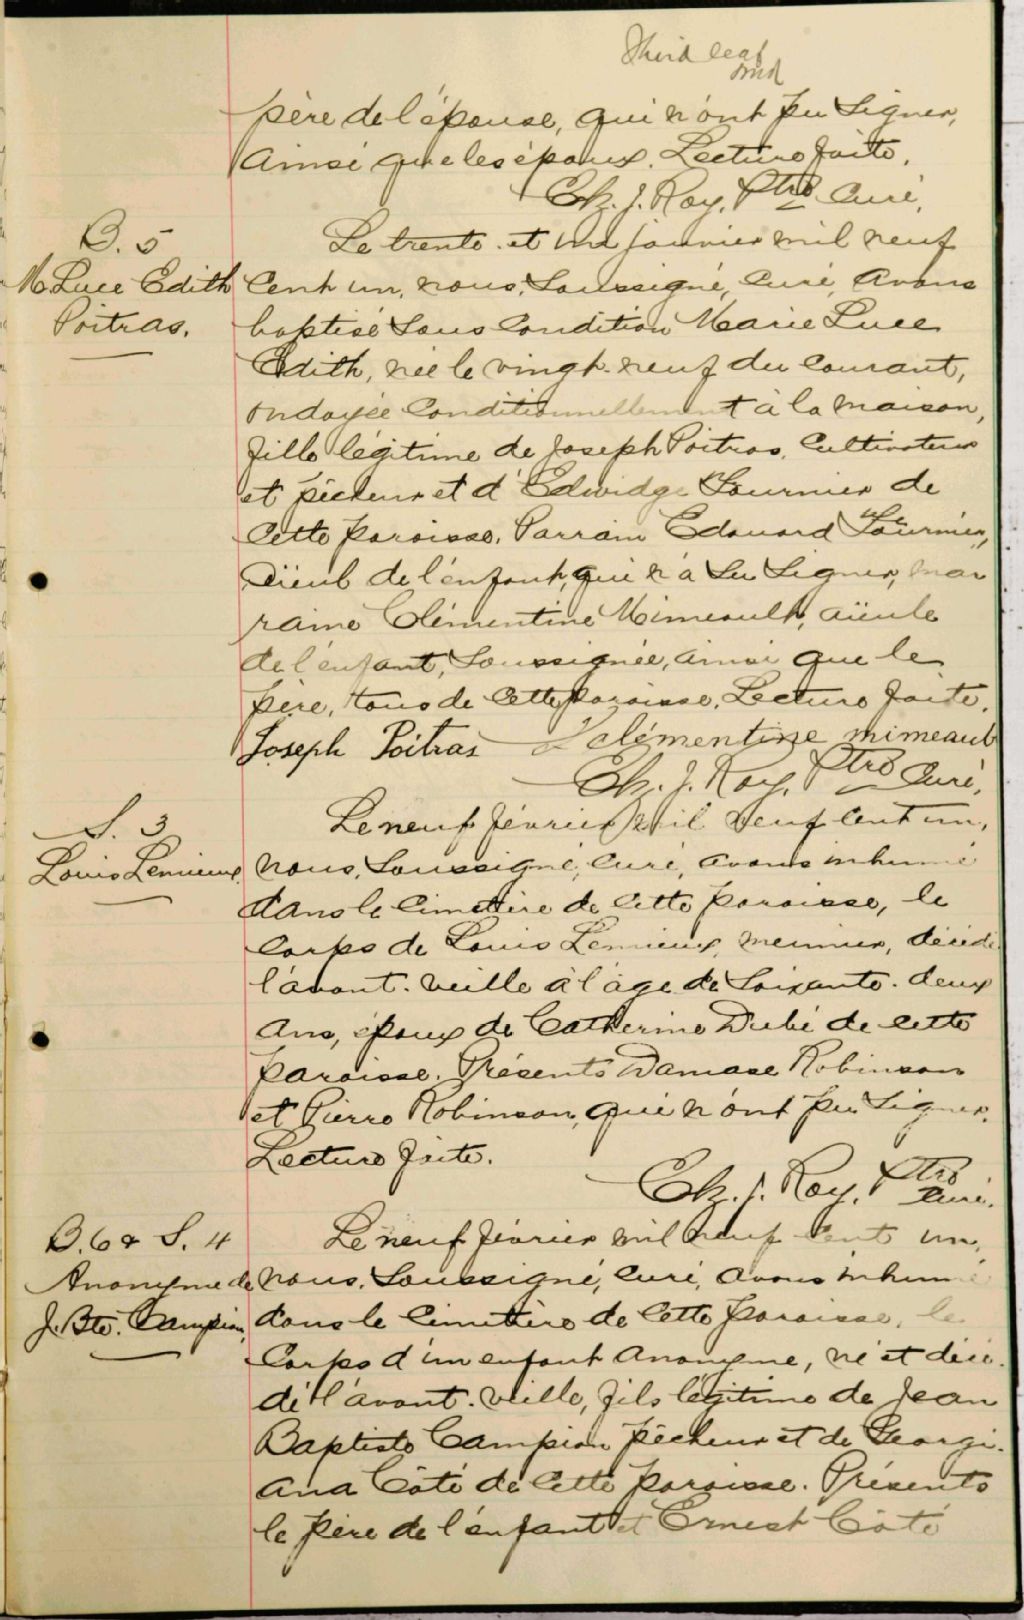 Third leaf
père de l'épouse, qui n'ont pu signer,
ainsi que les époux. Lecture faite.
Ch. J. Roy, Ptre Curé,
B. 5
M. Luce Edith
Poitras.
Le trente et un janvier mil neuf
cent un, nous, soussigné, curé, avons
baptisé sous condition Marie Luce
Edith, née le vingt-neuf du courant,
ondoyée conditionnellement à la maison,
fille légitime de Joseph Poitras, cultivateur
et pêcheur et d'Edwidge Fournier de
cette paroisse. Parrain Edouard Fournier,
aïeul de l'enfant, qui n'a su signer, mar
raine Clémentine Mimeault, aïeule
de l'enfant, soussignée, ainsi que le
père, tous de cette paroisse. Lecture faite.
Joseph Poitras clémentine mimeault
Ch. J. Roy, Ptre Curé,
S. 3
Louis Lemieux
Le neuf février mil neuf cent un,
nous, soussigné, curé, avons inhumé
dans le cimetière de cette paroisse, le
corps de Louis Lemieux, meunier, décédé
l'avant-veille à l'âge de soixante-deux
ans, époux de Catherine Dubé de cette
paroisse. Présents Damase Robinson
et Pierre Robinson, qui n'ont pu signer.
Lecture faite.
Ch. J. Roy, Ptre Curé.
B. 6 & S. 4
Anonyme de
J. Bte. Campion,
Le neuf février mil neuf cent un,
nous, soussigné, curé, avons inhumé
dans le cimetière de cette paroisse, le
corps d'un enfant anonyme, né et décé-
dé l'avant-veille, fils légitime de Jean
Baptiste Campion pêcheur et de Georgi-
ana Côté de cette paroisse. Présents
le père de l'enfant et Ernest Côté